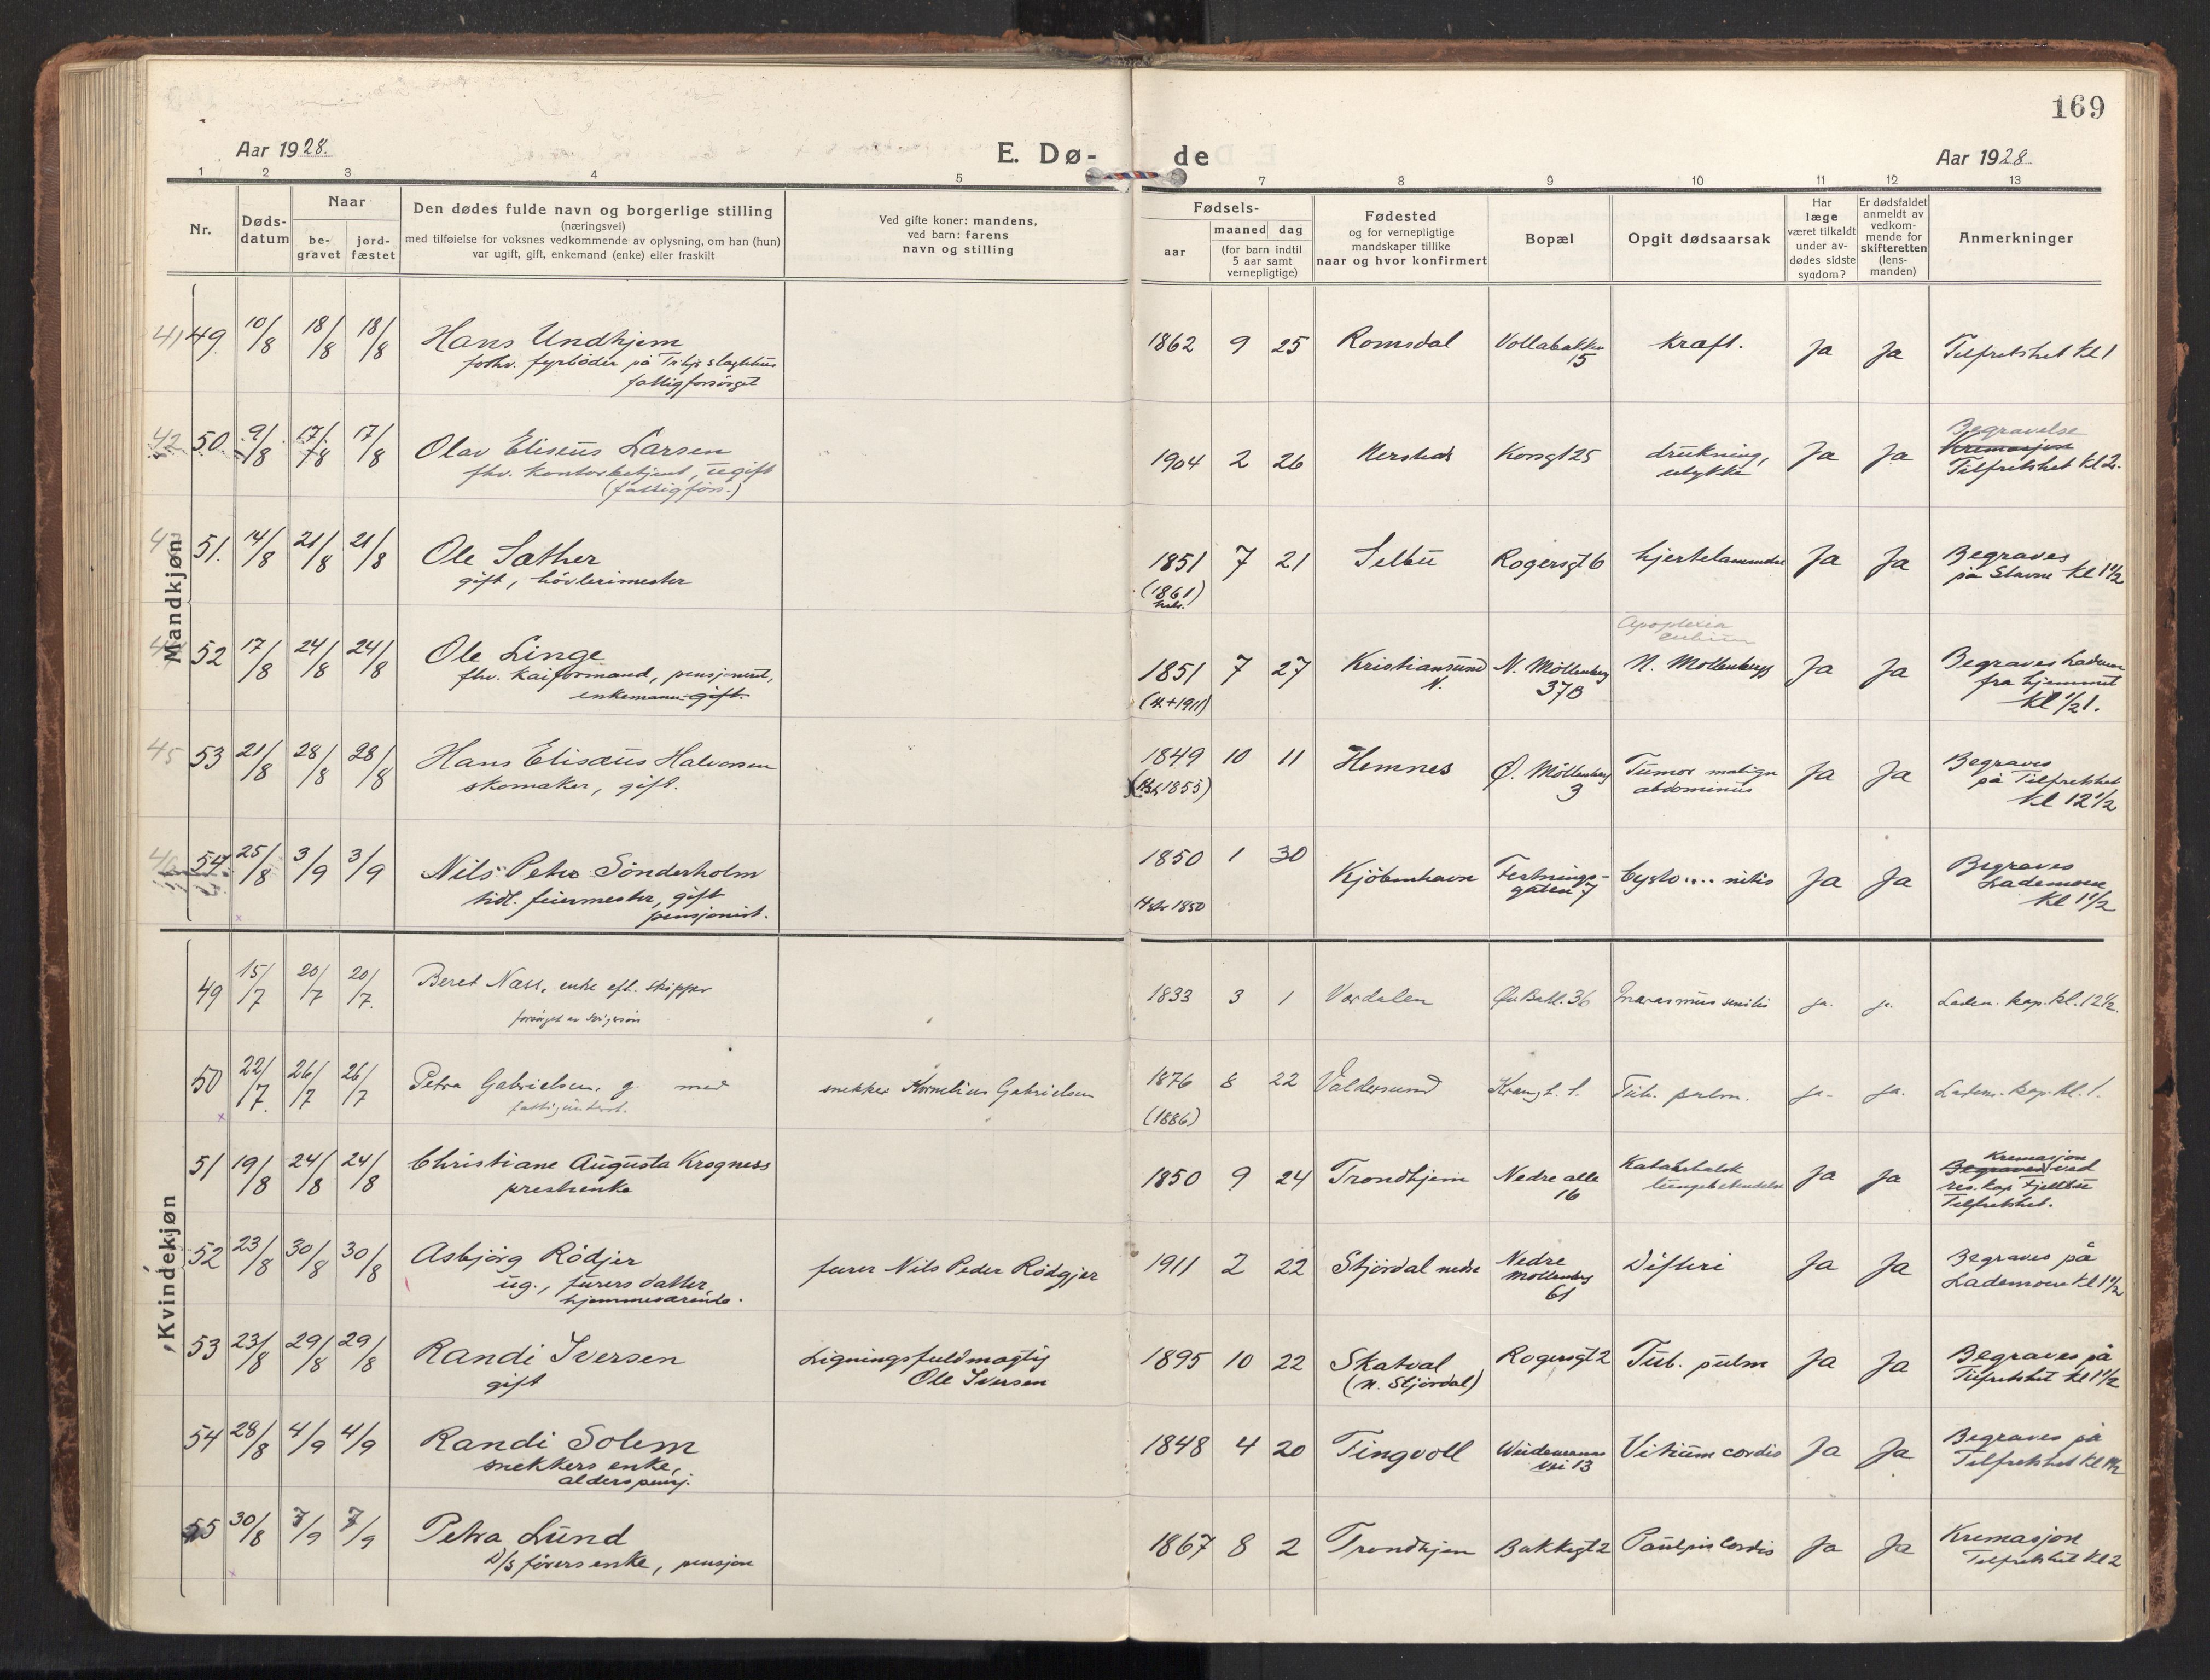 169
Aar 1928.
E. Dø-
de
Aar 1928
1 2 3 4 5 7 8 9 10 11 12 13
Nr.
Døds-
datum
Naar
be-
gravet
jord-
fæstet
Den dødes fulde navn og borgerlige stilling
(næringsvei)
med tilføielse for voksnes vedkommende av oplysning, om han (hun)
var ugift, gift, enkemand (enke) eller fraskilt
Ved gifte koner: mandens,
ved barn: farens
navn og stilling
Fødsels-
aar
maaned dag
(for barn indtil
5 aar samt
vernepligtige)
Fødested
og for vernepligtige
mandskaper tillike
naar og hvor konfirmert
Bopæl
Opgit dødsaarsak
Har
læge
været tilkaldt
under av-
dødes sidste
sygdom?
Er dødsfaldet
anmeldt av
vedkom-
mende for
skifteretten
(lens-
manden)
Anmerkninger
Mandkjøn
41 49. 10/8 18/8 18/8 Hans Undhjem 1862 9 25 Romsdal Vollabakke kraft. Ja Ja Tilfretshet kl 1
forhv. fyrbøder på Trhjs slagtehus 15
fattigforsørget
Begravelse
42 50. 9/8 17/8 17/8 Olav Eliseus Larsen 1904 2 26 Korsgt 25 drukning, Ja Ja Kremasjon
fhv. kontorbetjent, ugift ulykke Tilfretshet kl 2.
(fattigfors.)
51. 14/8 21/8 21/8 Ole Sæther 1851 7 21 Selbu Rogersgt 6 hjertelammelse Ja Ja Begraves
gift, hövlerimester (1861) på Stavne kl 1 1/2
Apoplexia
52 17/8 24/8 24/8 Ole Linge 1851 7 27 Kristiansund N. Möllenberg N. Mollenbergs Ja Ja Begraves Lademoen
fhv. kaiformand, pensjonert, N. 37B fra hjemmet
enkemann gift. kl 1/2 1.
45 53 21/8 28/8 28/8 Hans Elisæus Halvorsen 1849 10 11 Hemnes Ø. Möllenberg Tumor malign Ja Ja Begraves
skomaker, gift. 1855) 3 abdominus på Tilfretshet
kl 12 1/2
46 54 25/8 3/9 3/9 Nils Peter Sönderholm 1850 1 30 Kjöbenhavn Festnings- Cysto....nitis Ja Ja Begraves
tidl. feiermester, gift 1850 gaten 7 Lademoen
pensjonist. kl 1 1/2
Kvindekjøn
49 15/7 20/7 20/7. Beret Næss, enke eft. skipper 1833 3 1 Værdalen Øv. Bakl. 36 marasmus senilis ja. ja. Ladem. kap. kl. 12 1/2.
forsörget av svigersön
50 22/7. 26/7 26/7 Petra Gabrielsen. g. med snekker Kornelius Gabrielsen 1876 8 22 Valdersund Tub. pulm. ja- ja. Ladem. kap. kl. 1.
fattigunderst. (1886)
51 19/8 24/8 24/8 Christiane Augusta Krogness 1850 9 24 Trondhjem Nedre alle Katarrhalsk Ja Ja Kremasjon
presteenke 16 lungebetendelse Begraves ved
res. kap Fjelltue
Tilfretshet.
52 23/8 30/8 30/8 Asbjörg Rödjer furer Nils Peder Rödgjer 1911 2 22 Stjördal nedre Nedre Difteri Ja Ja Begraves på
ug., furers datter, Mollenberg Lademoen kl 1 1/2
hjemmeværende. 61
53 23/8 29/8 29/8 Randi Iversen Ligningsfuldmægtig 1895 10 22 Skatval Rogersgt 2 Tub. pulm Ja Ja Begraves på
gift Ole Iversen (N. Stjördal) Tilfretshet kl 1 1/2
54 28/8 4/9 4/9 Randi Solem 1848 4 20 Tingvoll Weidemanns Vitium cordis Ja Ja Begraves på
snekkers enke, vei 13 Tilfretshet kl 1 1/2
alderspensj.
55 30/8 7/9 7/9 Petra Lund 1867 8 2 Trondhjem Bakkegt 2 Ja Ja Kremasjon
D/S førers enke, pensjon Tilfretshet kl 2